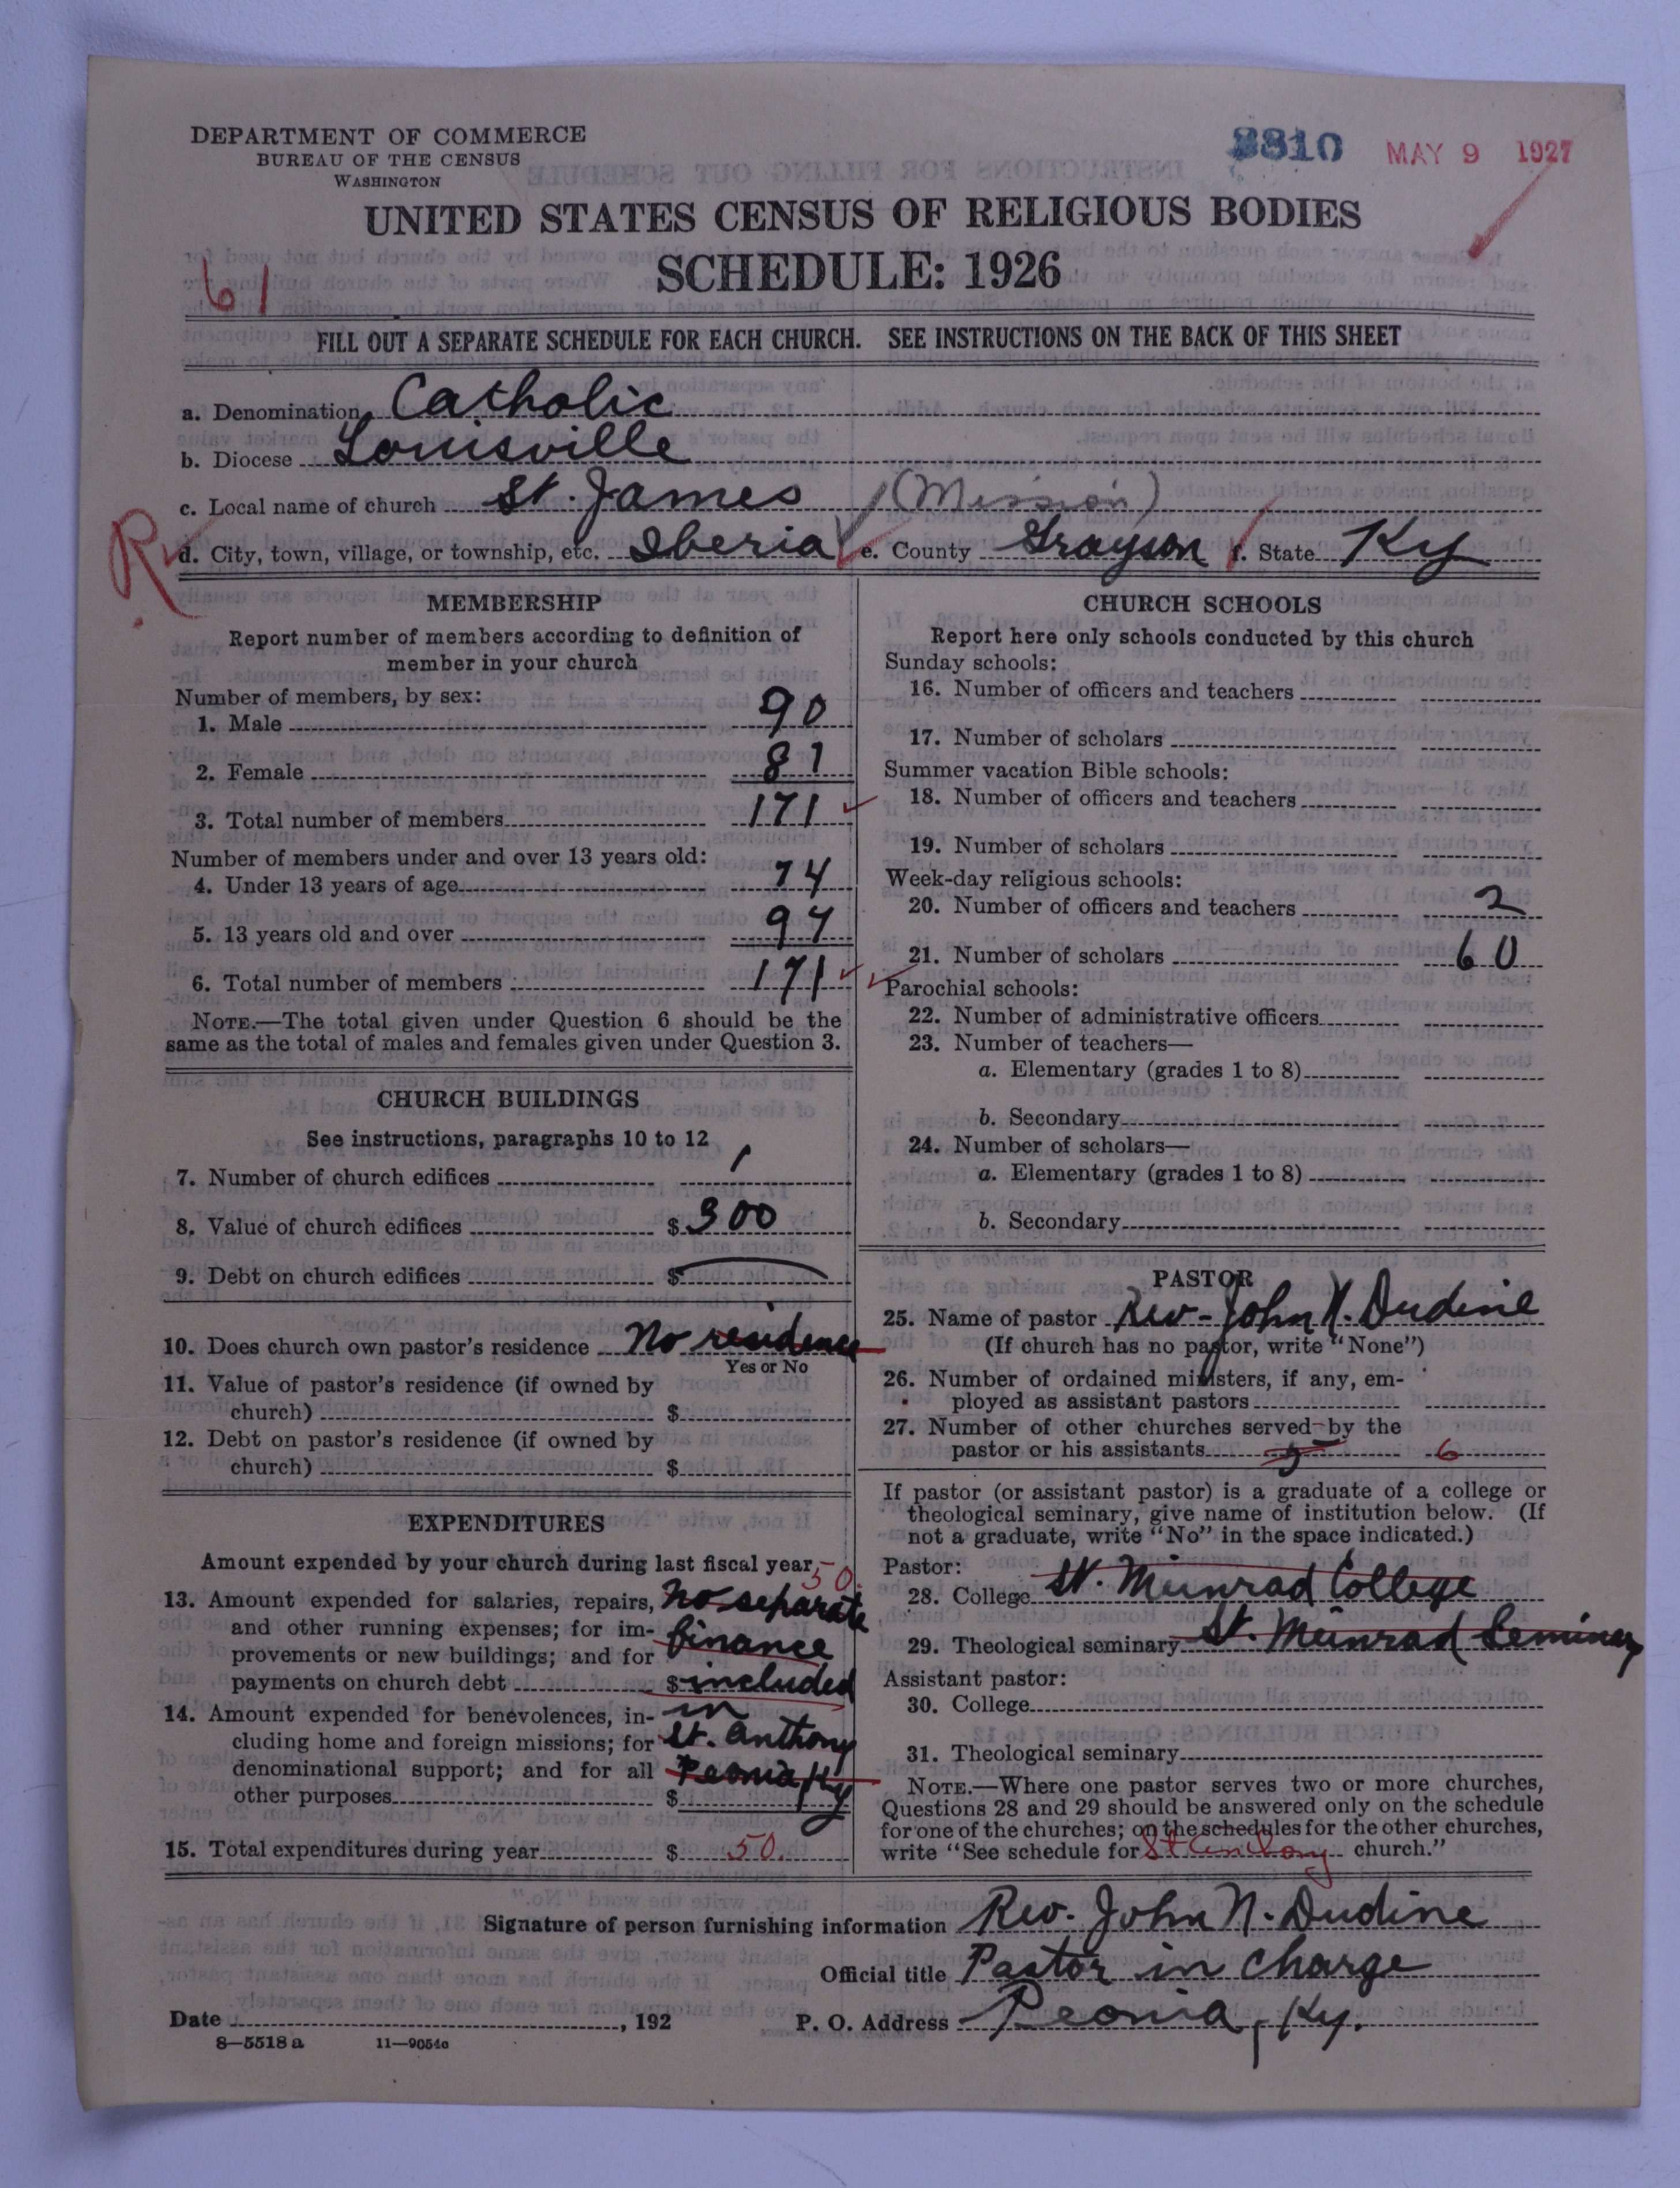 DEPARTMENT OF COMMERCE
BUREAU OF THE CENSUS
WASHINGTON
8810 MAY 9 1927
UNITED STATES CENSUS OF RELIGIOUS BODIES
SCHEDULE: 1926
61
FILL OUT A SEPARATE SCHEDULE FOR EACH CHURCH. SEE INSTRUCTIONS ON THE BACK OF THIS SHEET
a. Denomination Catholic
b. Diocese Louisville
c. Local name of church St. James (Mission)
R
d. City, town, village, or township, etc. Iberia e. County Grayson f. State Ky
MEMBERSHIP
Report number of members according to definition of
member in your church
Number of members, by sex:
1. Male 90
2. Female 81
3. Total number of members 171
Number of members under and over 13 years old:
4. Under 13 years of age 74
5. 13 years old and over 97
6. Total number of members 171
NOTE.—The total given under Question 6 should be the
same as the total of males and females given under Question 3.
CHURCH BUILDINGS
See instructions, paragraphs 10 to 12
7. Number of church edifices 1
8. Value of church edifices $ 300
9. Debt on church edifices $
10. Does church own pastor's residence No residence
Yes or No
11. Value of pastor's residence (if owned by
church) $
12. Debt on pastor's residence (if owned by
church) $
EXPENDITURES
Amount expended by your church during last fiscal year
50.
13. Amount expended for salaries, repairs, No separate
and other running expenses; for im- finance
provements or new buildings; and for
payments on church debt $ included
14. Amount expended for benevolences, in- in
cluding home and foreign missions; for St. Anthony
denominational support; and for all Peonia, Ky
other purposes $
15. Total expenditures during year $ 50.
CHURCH SCHOOLS
Report here only schools conducted by this church
Sunday schools:
16. Number of officers and teachers
17. Number of scholars
Summer vacation Bible schools:
18. Number of officers and teachers
19. Number of scholars
Week-day religious schools:
20. Number of officers and teachers 2
21. Number of scholars 60
Parochial schools:
22. Number of administrative officers
23. Number of teachers—
a. Elementary (grades 1 to 8)
b. Secondary
24. Number of scholars—
a. Elementary (grades 1 to 8)
b. Secondary
PASTOR
25. Name of pastor Rev. John N. Dudine
(If church has no pastor, write "None")
26. Number of ordained ministers, if any, em-
ployed as assistant pastors
27. Number of other churches served by the
pastor or his assistants 5 6
If pastor (or assistant pastor) is a graduate of a college or
theological seminary, give name of institution below. (If
not a graduate, write "No" in the space indicated.)
Pastor:
28. College St. Meinrad College
29. Theological seminary St. Meinrad Seminary
Assistant pastor:
30. College
31. Theological seminary
NOTE.—Where one pastor serves two or more churches,
Questions 28 and 29 should be answered only on the schedule
for one of the churches; on the schedules for the other churches,
write "See schedule for St Anthony church."
Signature of person furnishing information Rev. John N. Dudine
Official title Pastor in charge
Date , 192 P. O. Address Peonia, Ky.
8—5518 a 11—9054a